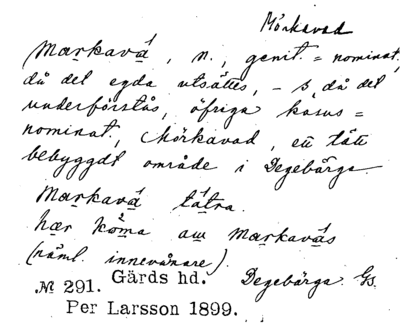 Mörkavad
Markavá, n., genit. = nominat.,
då det egda utsättes, – s, då det
underförstås, öfriga kasus =
nominat., Mörkavad, ett tätt
bebyggdt område i Degeberga.
Markavá tátra.
hær kóma aw markavás
(näml. innevånare).
№ 291. Gärds hd. Degeberga. Gs.
Per Larsson 1899.